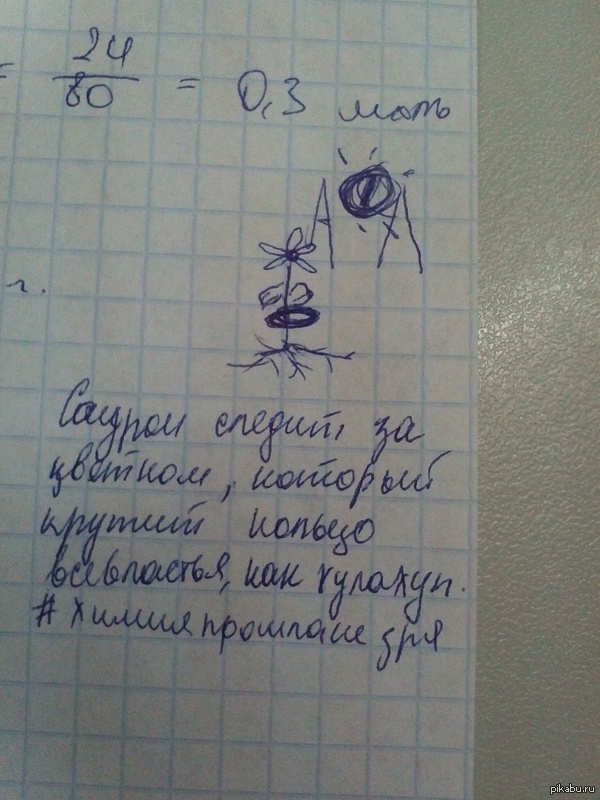 = 24/80 = 0,3 моль
г.
Саурон следит за
цветком, который
крутит кольцо
всевластья, как хулахуп.
# химияпрошлане зря
pikabu.ru